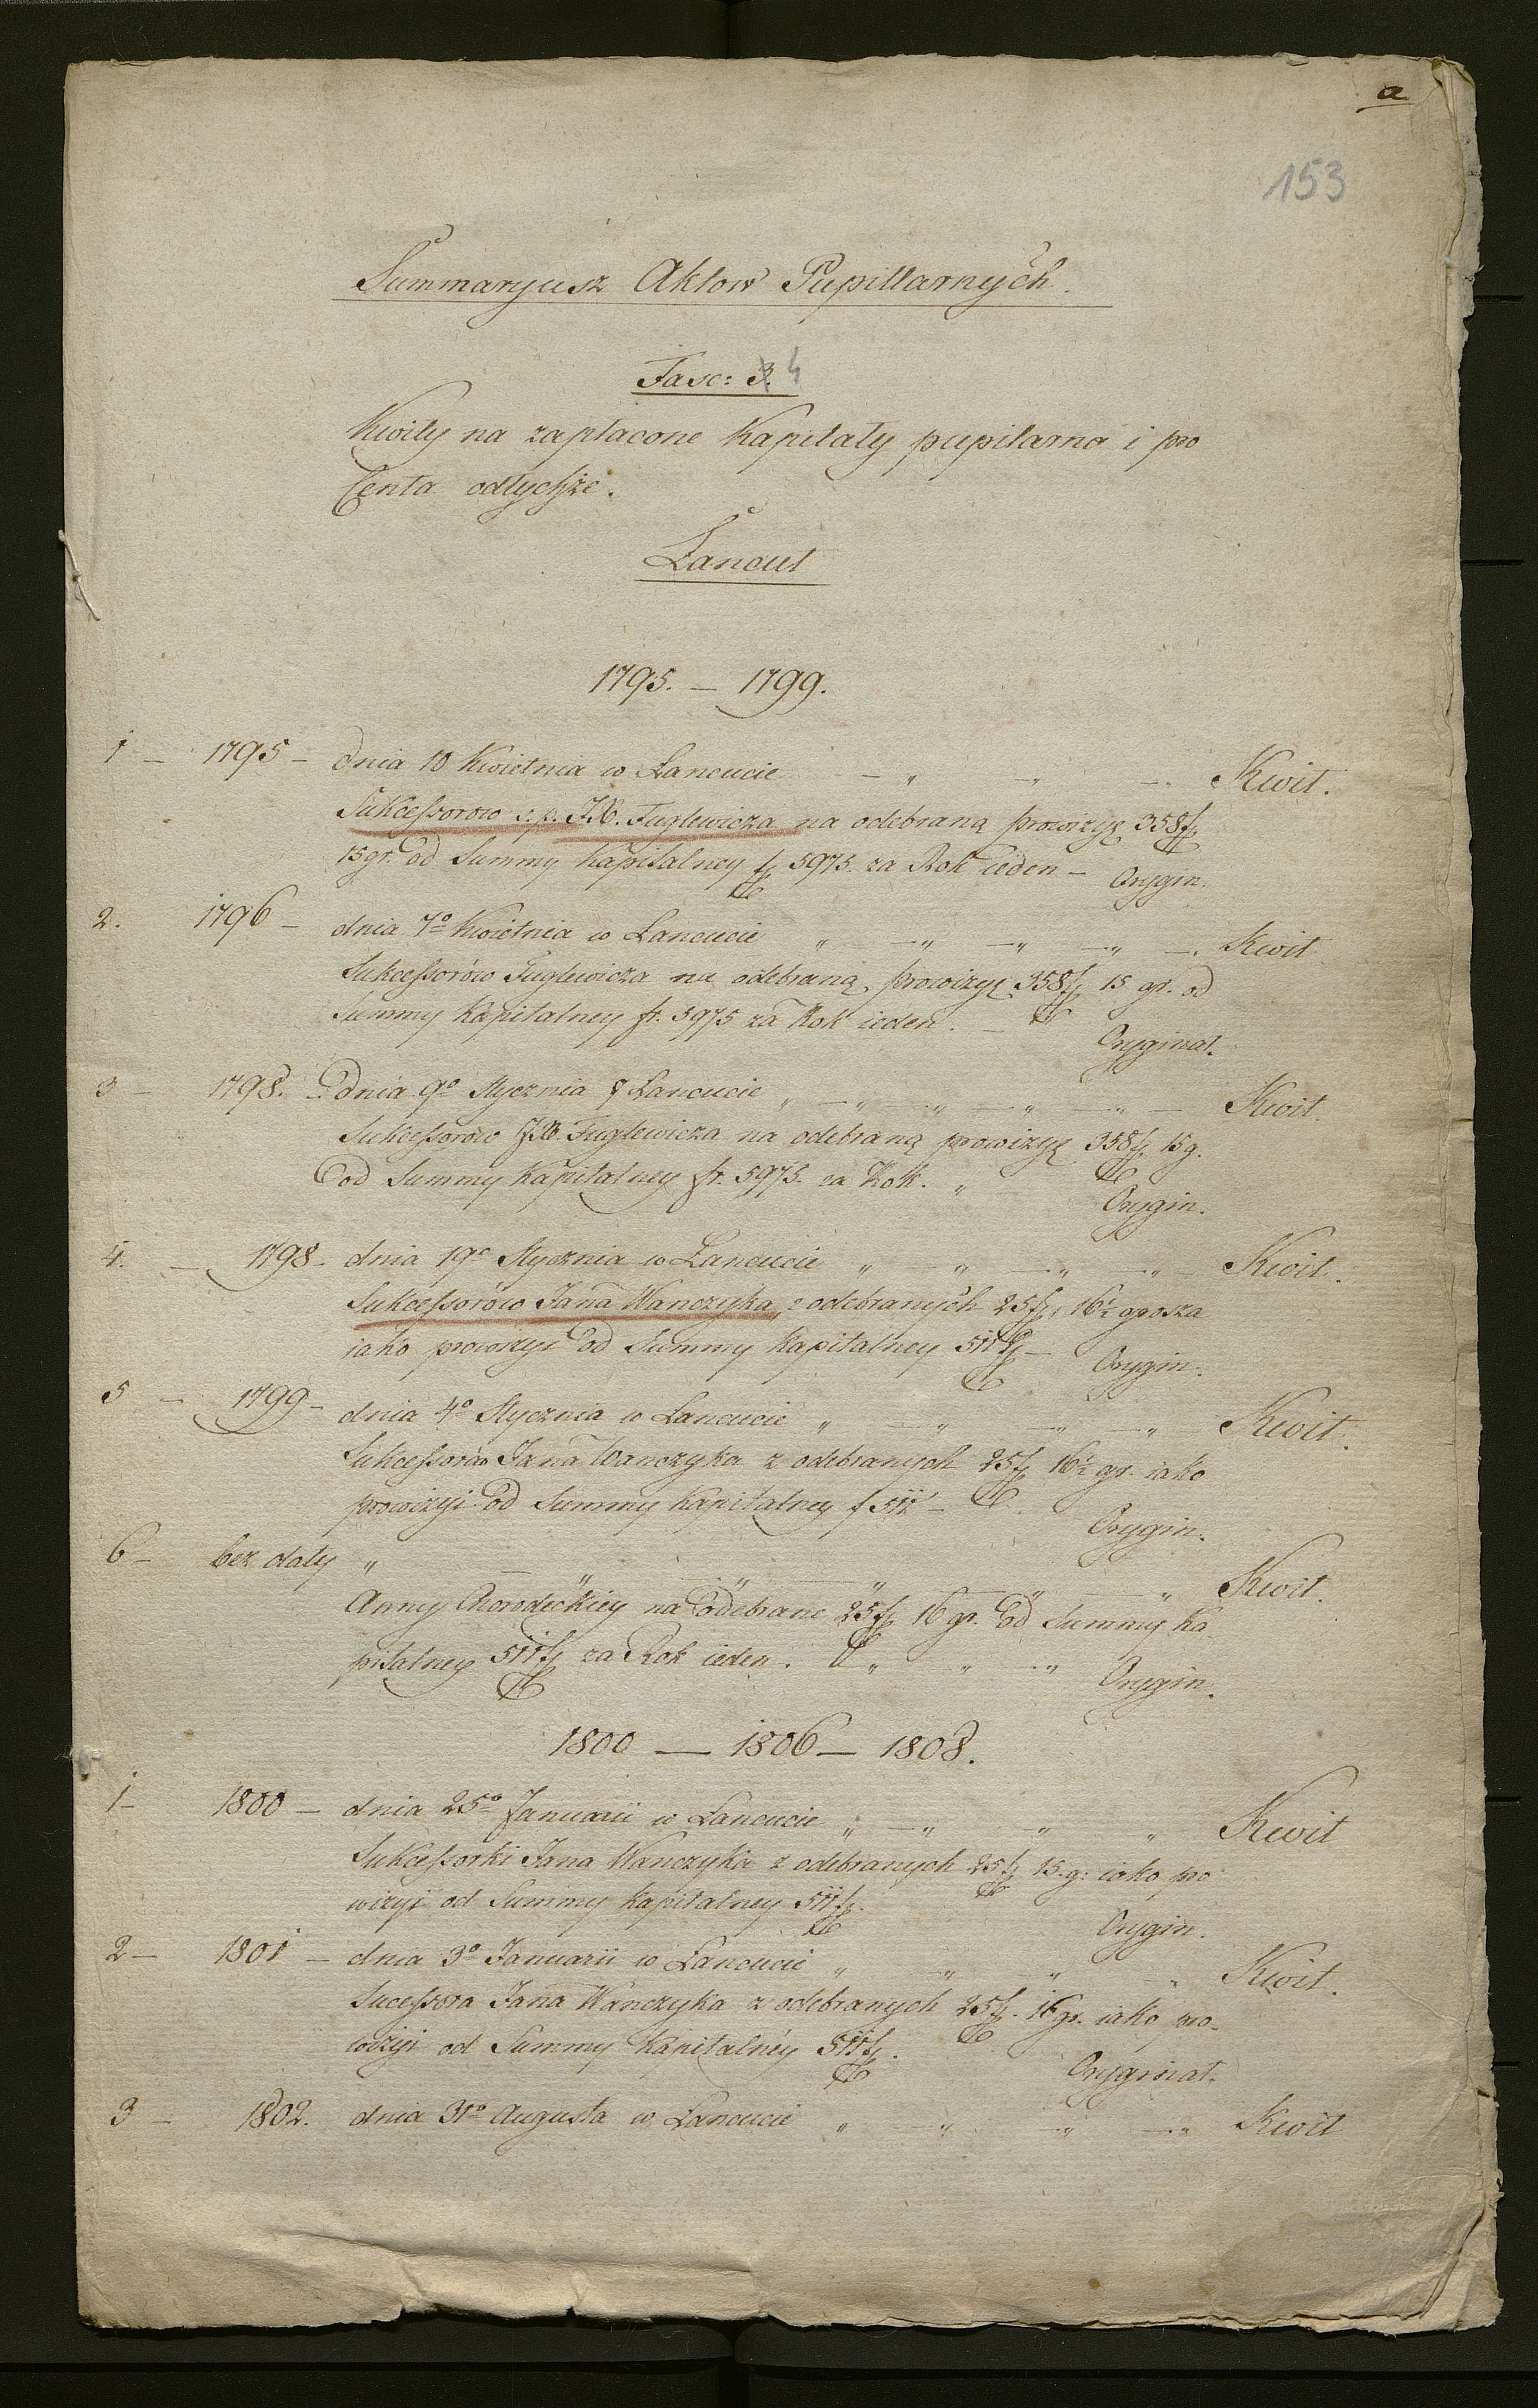 a
153
Summaryusz Aktow Pupillarnych.
Fasc: 3. 4
Kwity na zapłacone Kapitały pupilarna i pro
Centa odtychże.
Łancut
1795. — 1799.
1 — 1795 — dnia 10 Kwietnia w Łancucie — " — " — Kwit.
Sukcessorow s.p. JX. Fuglewicza na odebraną prowizyę 358 f
15 gr. od Summy Kapitalney f 5975. za Rok ieden — Orygin.
2. 1796 — dnia 7º Kwietnia w Łancucie " — " — " — " — Kwit
Sukcessorów Fuglewicza na odebraną prowizyę 358 f 15 gr. od
Summy Kapitalney fr. 5975 za Rok ieden. — Oryginał.
3 — 1798. dnia 9º Stycznia Łancucie " — " — " — " — " — Kwit.
Sukcessorow JX. Fuglewicza na odebraną prowizyę 358 f 15 g.
od Summy Kapitalney fr. 5975. za Rok. " Orygin.
4. — 1798 — dnia 19º Stycznia w Łancucie " — " — " — " — Kwit.
Sukcessorów Jana Wanczyka z odebranych 25 f 16½ grosza
iako prowizyi od Summy Kapitalney 511 f — Orygin.
5 — 1799 — dnia 4º Stycznia w Łancucie " — " — " — " — Kwit.
Sukcessorów Jana Wanczyka z odebranych 25 f 16½ gr. iako
prowizyi od Summy Kapitalney f 511 — Orygin.
6 — bez daty " — " — " — " — " — " Kwit.
Anny na odebrane 25 f 16 gr. od Summy Ka
pitalney 511 f za Rok ieden. " " — " Orygin.
1800 — 1806 — 1808.
1 — 1800 — dnia 25º Januarii w Łancucie " — " " " Kwit
Sukcessorki Jana Wanczyka z odebranych 25 f 15. g: iako pro
wizyi od Summy Kapitalney 511 f. Orygin.
2 — 1801 — dnia 3º Januarii w Łancucie " — " " — " Kwit.
Sucessora Jana Wanczyka z odebranych 25 f. 16 gr. iako pro-
wizyi od Summy Kapitalney 511 f. Oryginał.
3 — 1802. dnia 31º Augusta w Łancucie " — " — " — " Kwit